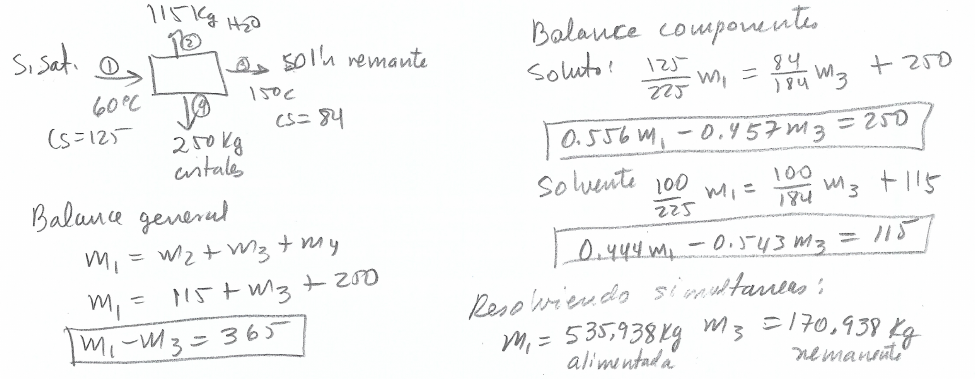 115 Kg H2O
②
S. Sat. ①
③ Sol'n remante
60°C
15°C
④
CS=125
CS= 84
250 Kg
cristales
Balance general
m₁ = m₂ + m₃ + m₄
m₁ = 115 + m₃ + 250
m₁ - m₃ = 365
Balance componentes
Soluto: 125/225 m₁ = 84/184 m₃ + 250
0.556 m₁ - 0.457 m₃ = 250
Solvente 100/225 m₁ = 100/184 m₃ + 115
0.444 m₁ - 0.543 m₃ = 115
Resolviendo simultaneas:
m₁ = 535,938 Kg m₃ = 170,938 Kg
alimentada remanente